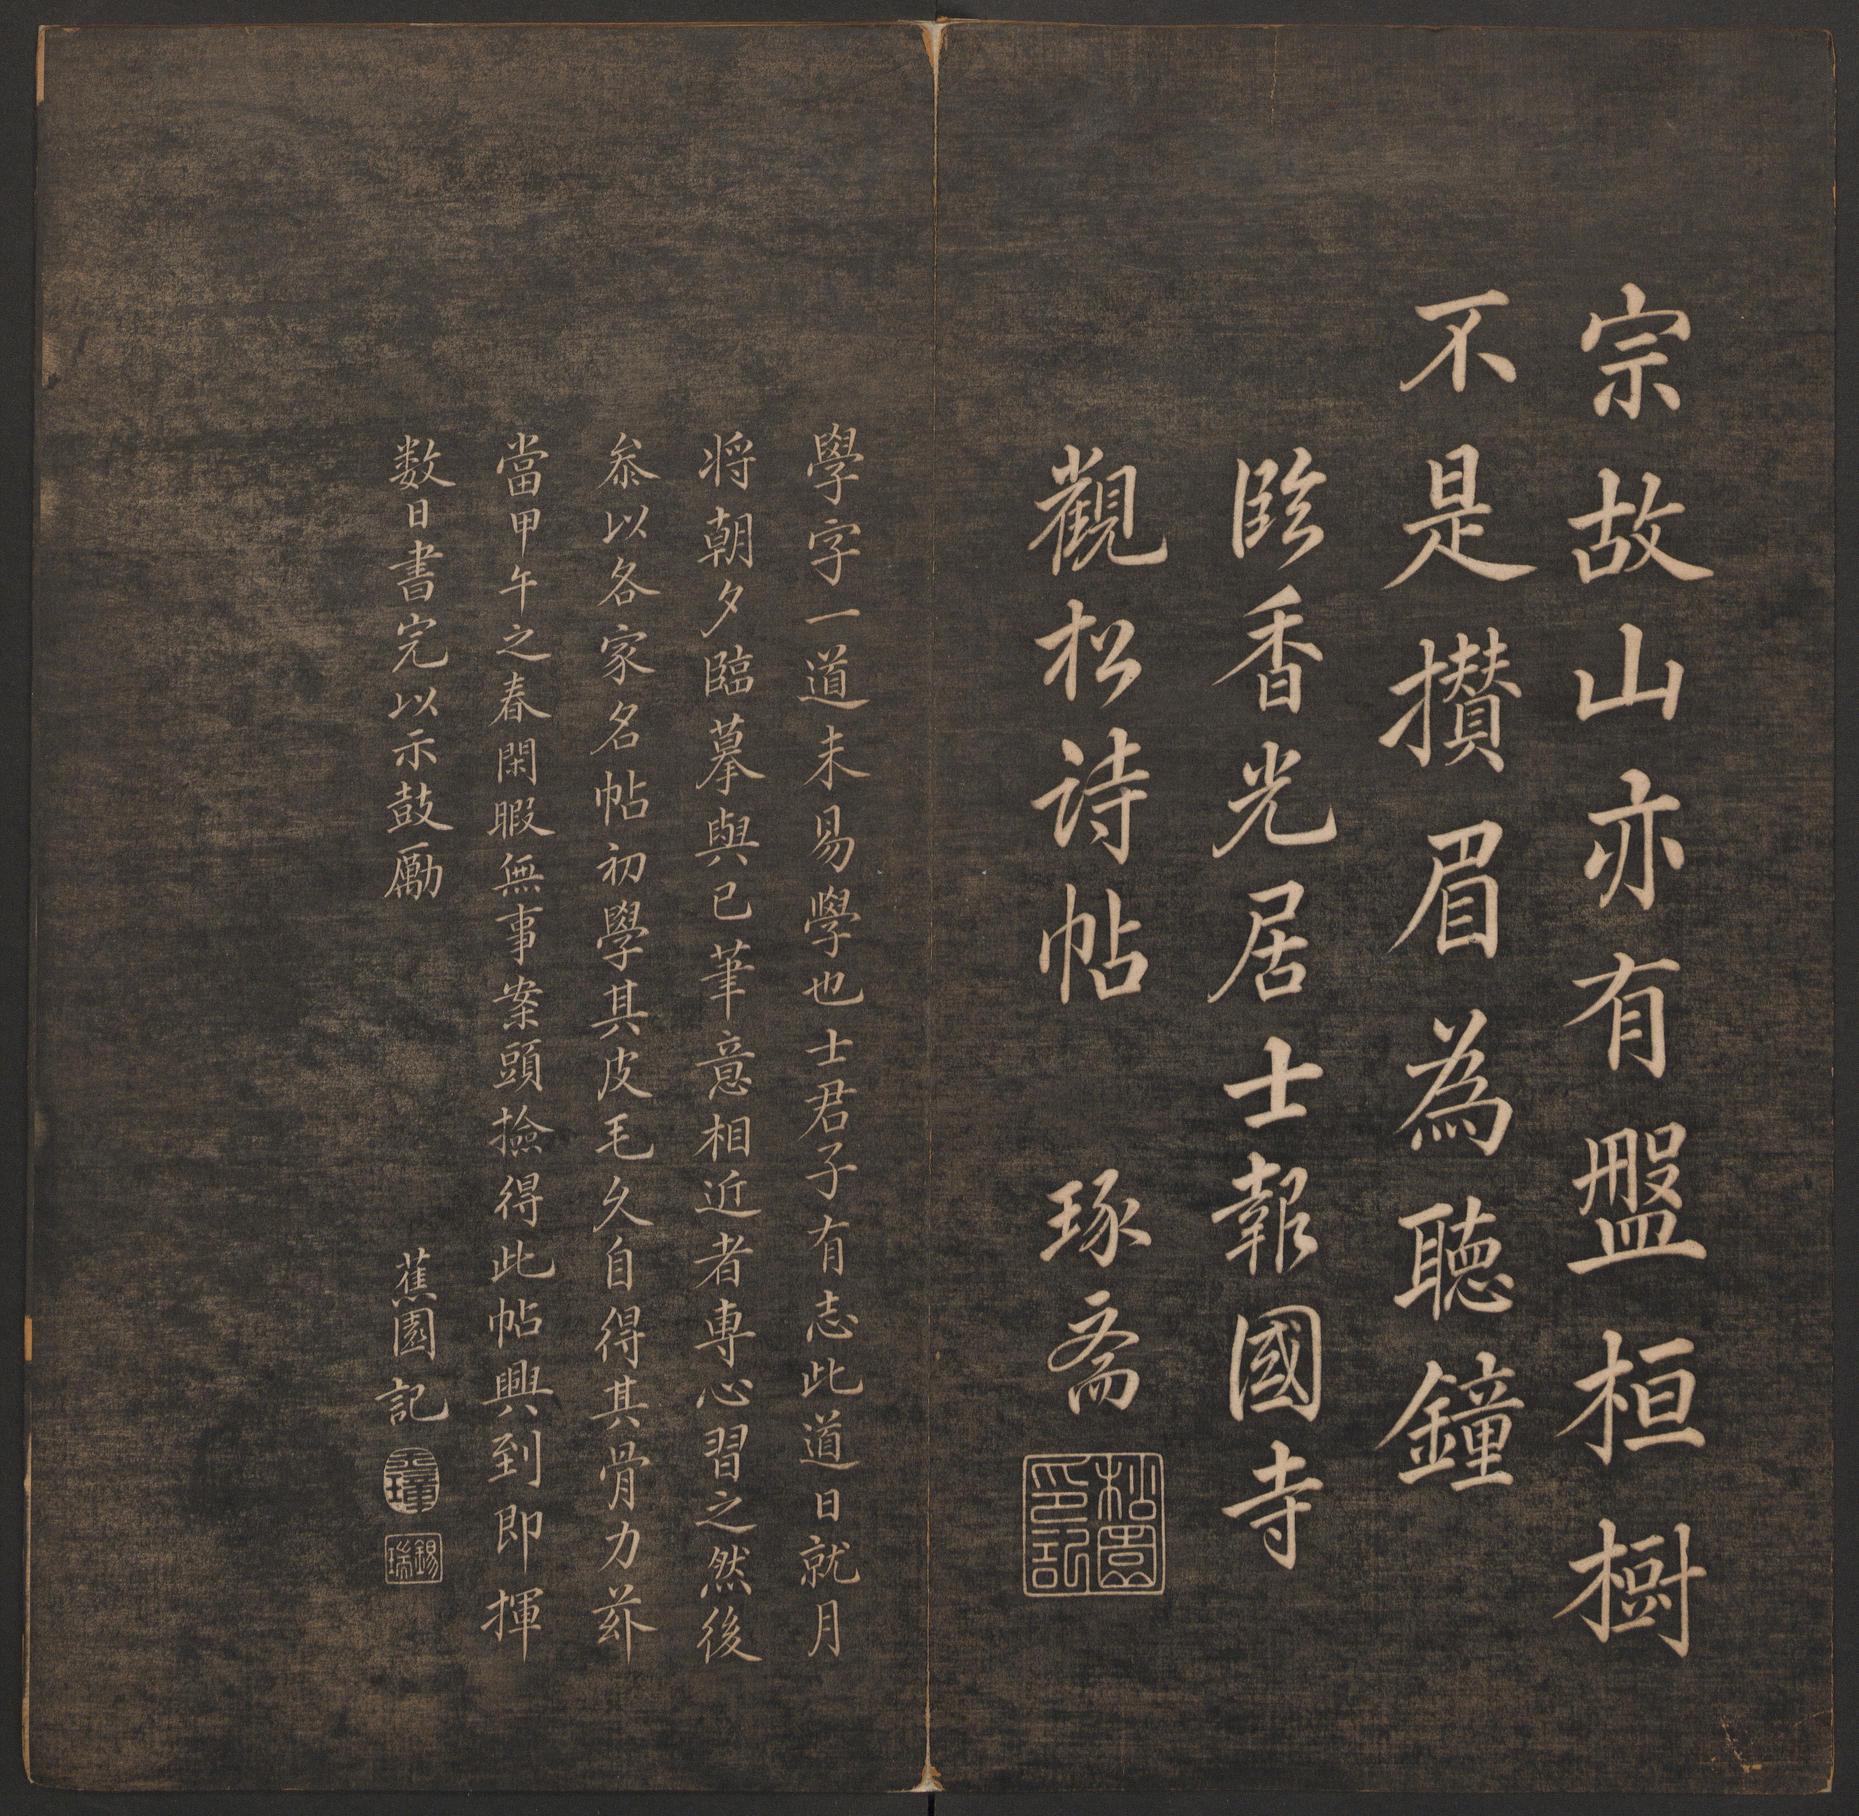 宗故山亦有盤桓樹
不是攢眉為聽鐘
臨香光居士報國寺
觀松詩帖　琢斋
松園印記
學字一道未易學也士君子有志此道日就月
将朝夕臨摹與已筆意相近者專心習之然後
叅以各家名帖初學其皮毛久自得其骨力兹
當甲午之春閑暇無事案頭撿得此帖興到即揮
数日書完以示鼓勵　蕉園記
錫瑞